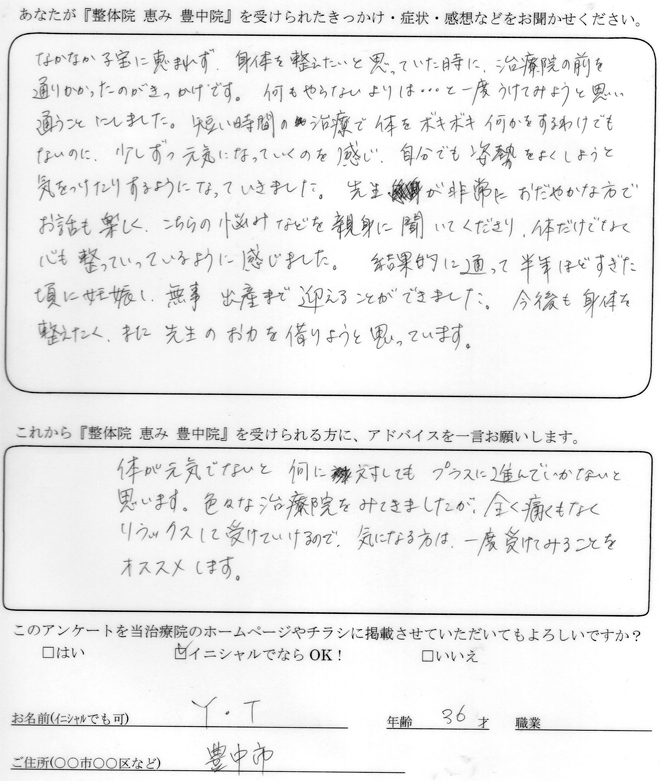 あなたが『整体院 恵み 豊中院』を受けられたきっかけ・症状・感想などをお聞かせください。
なかなか子宝に恵まれず、身体を整えたいと思っていた時に、治療院の前を
通りかかったのがきっかけです。何もやらないよりは…と一度うけてみようと思い
通うことにしました。短い時間の治療で体をボキボキ何かをするわけでも
ないのに、少しずつ元気になっていくのを感じ、自分でも姿勢をよくしようと
気をつけたりするようになっていきました。先生が非常におだやかな方で
お話も楽しく、こちらの悩みなどを親身に聞いてくださり、体だけでなく
心も整っていっているように感じました。結果的に通って半年ほどすぎた
頃に妊娠し、無事出産まで迎えることができました。今後も身体を
整えたく、また先生のお力を借りようと思っています。
これから『整体院 恵み 豊中院』を受けられる方に、アドバイスを一言お願いします。
体が元気でないと何に対してもプラスに進んでいかないと
思います。色々な治療院をみてきましたが、全く痛くもなく
リラックスして受けていけるので、気になる方は、一度受けてみることを
オススメします。
このアンケートを当治療院のホームページやチラシに掲載させていただいてもよろしいですか？
□はい ☑イニシャルでならOK！ □いいえ
お名前(イニシャルでも可) Y・T 年齢 36 才 職業
ご住所(〇〇市〇〇区など) 豊中市